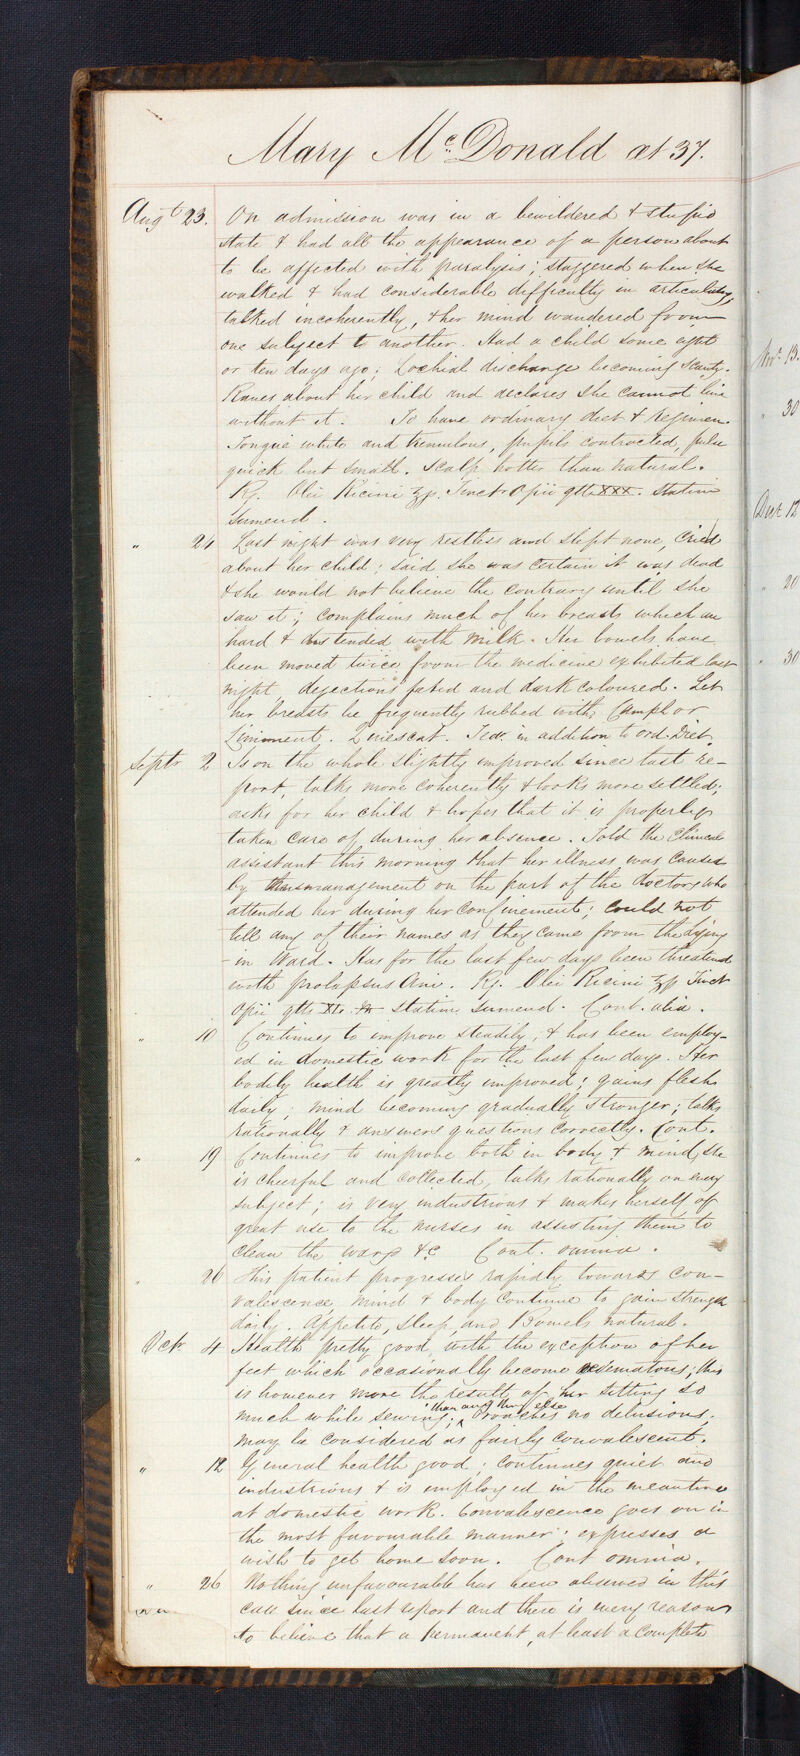 Mary McDonald at 37.
Augt 23. On admission was in a bewildered & stupid
state & had all the appearance of a person about
to be affected with paralysis; staggered when she
walked & had considerable difficulty in articulating;
talked incoherently, & her mind wandered from
one subject to another. Had a child some eight
or ten days ago; Lochial discharge becoming scanty.
Raves about her child and declares she cannot live
without it. To have ordinary diet & regimen.
Tongue white and tremulous, pupils contracted, pulse
quick but small. Scalp hotter than natural.
Rj. Olei Ricini ℥j. Tinct Opii gtts XXX. Statim
Sumend.
" 24 Last night was very restless and slept none, Cried
about her child; said she was certain it was dead
& she would not believe the contrary until she
saw it; complains much of her breasts which are
hard & distended with milk. Her bowels have
been moved twice from the medicine exhibited last
night dejections fœtid and dark coloured. Let
her breasts be frequently rubbed with Camphor
Liniment. Quiescat. Tea in addition to ord. Diet.
Septr 2 Is on the whole slightly improved since last re-
port, talks more coherently & looks more settled;
asks for her child & hopes that it is properly
taken care of during her absence. Told the Clinical
assistant this morning that her illness was caused
by mismanagement on the part of the doctors who
attended her during her confinement; could not
tell any of their names as they came from the Lying
-in Ward. Has for the last few days been threatened
with prolapsus Ani. Rj. Olei Ricini ℥jſs Tinct
Opii gtts XL. statim sumend. Cont. alia.
" 10 Continues to improve steadily, & has been employ-
ed in domestic work for the last few days. Her
bodily health is greatly improved; gains flesh
daily; mind becoming gradually stronger; talks
rationally & answers questions correctly. Cont.
" 19 Continues to improve both in body & mind, she
is cheerful and collected, talks rationally on every
subject; is very industrious & makes herself of
great use to the nurses in assisting them to
clean the wards &c Cont. omnia.
" 26 This patient progresses rapidly towards con-
valescence, mind & body continue to gain strength
daily. Appetite, sleep, and Bowels natural.
Octr 4 Health pretty good, with the exception of her
feet which occasionally become œdematous; this
is however more the result of her sitting so
much while sewing, than any thing else; no delusions;
may be considered as fairly convalescent.
" 12 General health good; continues quiet and
industrious & is employed in the meantime
at domestic work. Convalescence goes on in
the most favourable manner; expresses a
wish to get home soon. Cont omnia.
" 26 Nothing unfavourable has been observed in this
case since last report and there is every reason
to believe that a permanent, at least a complete
over
Novr 13.
" 30
Decr 12
" 20
" 30